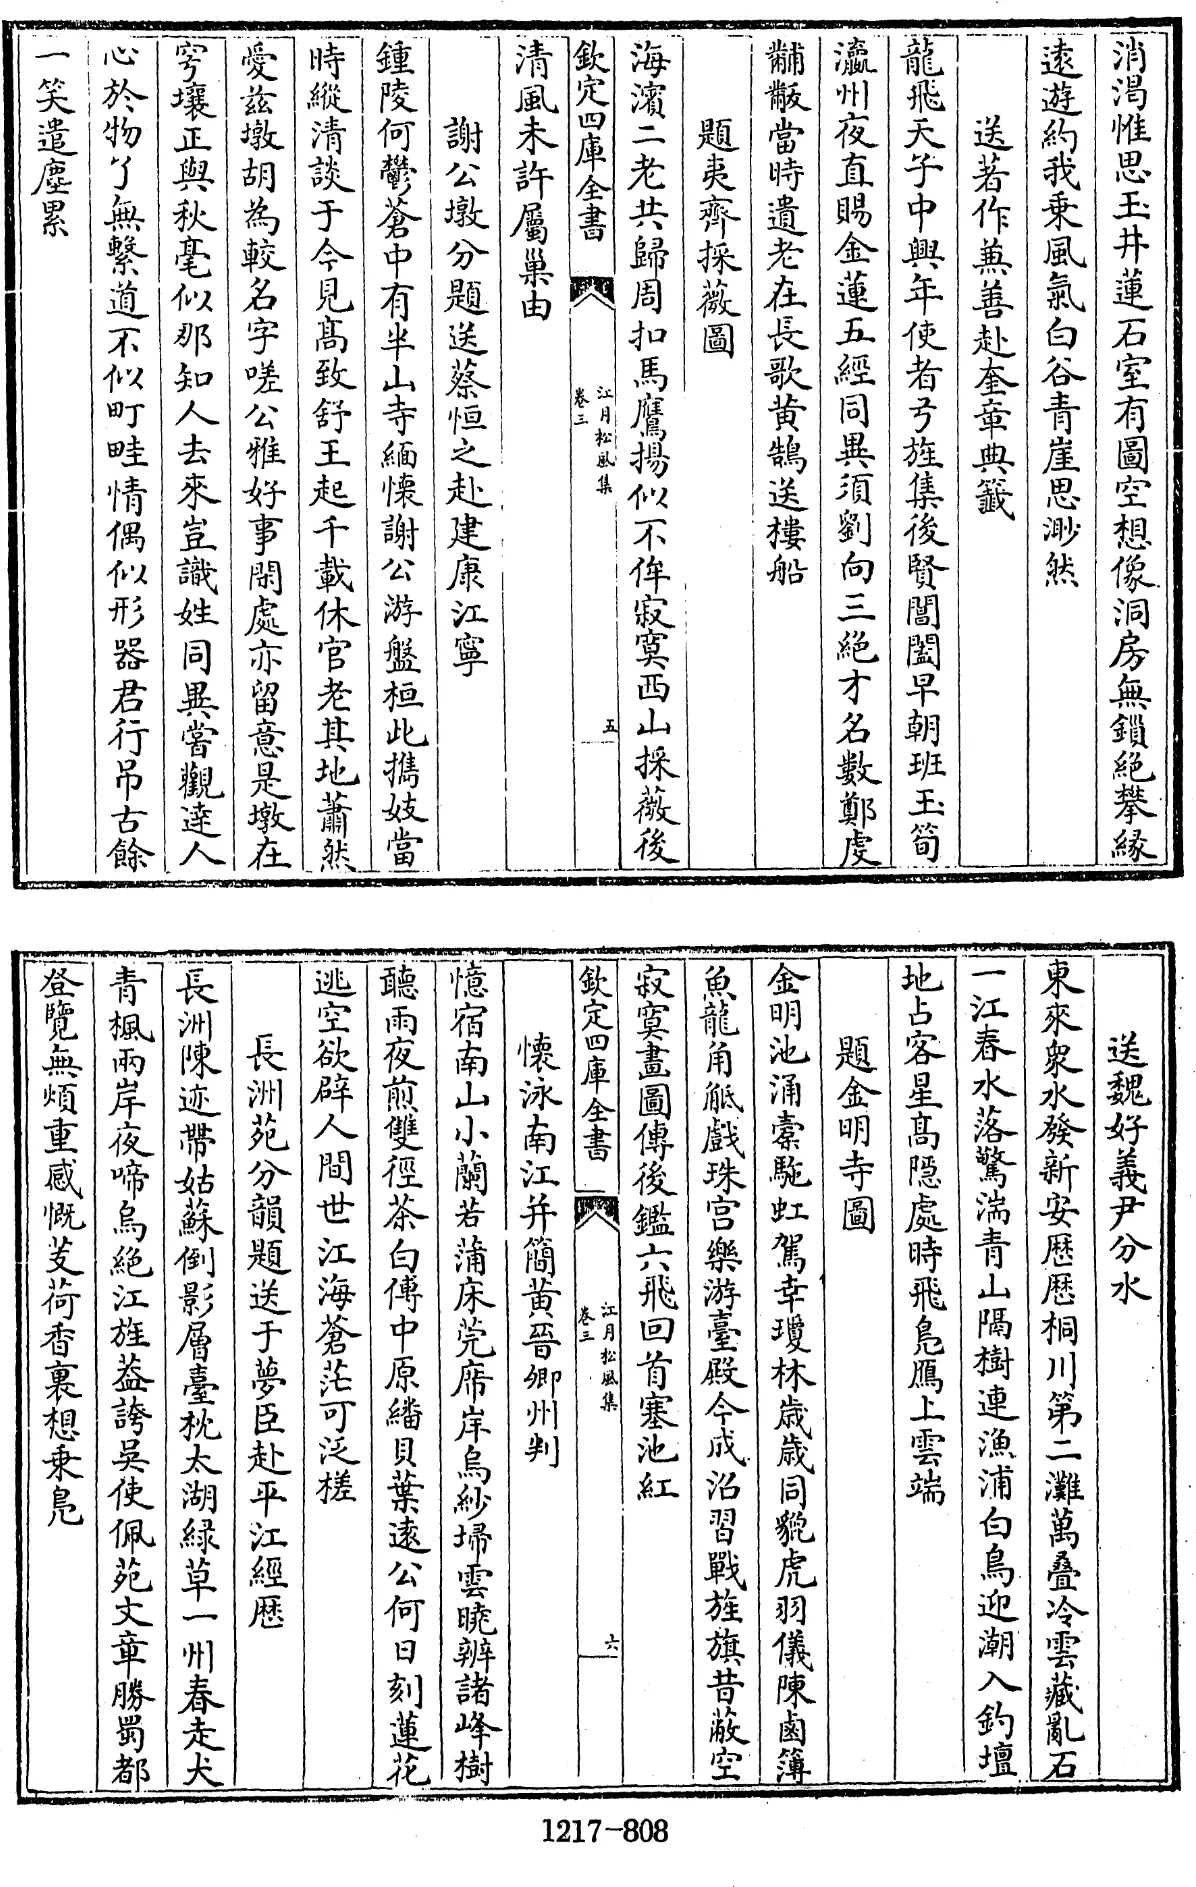 消渴惟思玉井蓮石室有圖空想像洞房無鎖絶攀縁
遠遊約我乗風氣白谷青崖思渺然
送著作兼善赴奎章典籤
龍飛天子中興年使者弓旌集後賢閶闔早朝班玉筍
瀛州夜直賜金蓮五經同異須劉向三絶才名數鄭虔
黼黻當時遺老在長歌黄鵠送樓船
題夷齊採薇圖
海濱二老共歸周扣馬鷹揚似不侔寂寞西山採薇後
欽定四庫全書
江月松風集
卷三
五
清風未許屬巢由
謝公墩分題送蔡恒之赴建康江寧
鍾陵何鬱蒼中有半山寺緬懷謝公游盤桓此攜妓當
時縱清談于今見髙致舒王起千載休官老其地蕭然
愛兹墩胡為較名字嗟公雅好事閑處亦留意是墩在
穹壤正與秋毫似那知人去來豈識姓同異嘗觀達人
心於物了無繫道不似町畦情偶似形器君行吊古餘
一笑遣塵累
送魏好義尹分水
東來衆水發新安歴歴桐川第二灘萬疊冷雲藏亂石
一江春水落驚湍青山隔樹連漁浦白鳥迎潮入釣壇
地占客星髙隠處時飛鳬鴈上雲端
題金明寺圖
金明池涌橐駝虹駕幸瓊林歳歳同貔虎羽儀陳鹵簿
魚龍角觝戲珠宫樂游臺殿今成沼習戰旌旗昔蔽空
寂寞畫圖傳後鑑六飛回首塞池紅
欽定四庫全書
江月松風集
卷三
六
懷泳南江并簡黄晉卿州判
憶宿南山小蘭若蒲床莞席岸烏紗埽雲曉辨諸峰樹
聽雨夜煎雙徑茶白傅中原繙貝葉逺公何日刻蓮花
逃空欲辟人間世江海蒼茫可泛槎
長洲苑分韻題送于夢臣赴平江經歴
長洲陳迹帶姑蘇倒影層臺枕太湖緑草一州春走犬
青楓兩岸夜啼烏絶江旌葢誇吳使佩苑文章勝蜀都
登覽無煩重感慨芰荷香裏想乗鳬
1217-808